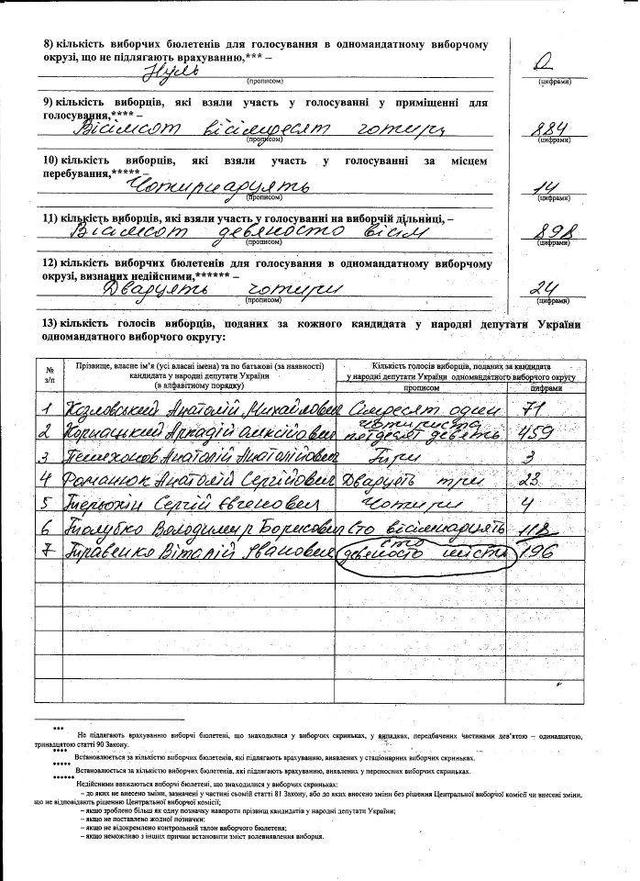 8) кількість виборчих бюлетенів для голосування в одномандатному виборчому
окрузі, що не підлягають врахуванню,*** –
Нуль 0
(прописом) (цифрами)
9) кількість виборців, які взяли участь у голосуванні у приміщенні для
голосування,**** –
Вісімсот вісімдесят чотири 884
(прописом) (цифрами)
10) кількість виборців, які взяли участь у голосуванні за місцем
перебування,***** –
Чотирнадцять 14
(прописом) (цифрами)
11) кількість виборців, які взяли участь у голосуванні на виборчій дільниці, –
Вісімсот девяносто вісім 898
(прописом) (цифрами)
12) кількість виборчих бюлетенів для голосування в одномандатному виборчому
окрузі, визнаних недійсними,****** –
Двадцять чотири 24
(прописом) (цифрами)
13) кількість голосів виборців, поданих за кожного кандидата у народні депутати України
одномандатного виборчого округу:
№ з/п
Прізвище, власне ім'я (усі власні імена) та по батькові (за наявності)
кандидата у народні депутати України
(в алфавітному порядку)
Кількість голосів виборців, поданих за кандидата
у народні депутати України одномандатного виборчого округу
прописом цифрами
1 Козловський Анатолій Михайлович Сімдесят один 71
2 Корнацький Аркадій Олексійович Чотириста пятдесят девять 459
3 Анатолій Анатолійович Три 3
4 Романюк Анатолій Сергійович Двадцять три 23
5 Сергій Євгенович Чотири 4
6 Володимир Борисович Сто вісімнадцять 118
7 Травенко Віталій Іванович сто девяносто шість 196
***
Не підлягають врахуванню виборчі бюлетені, що знаходилися у виборчих скриньках, у випадках, передбачених частинами дев'ятою – одинадцятою,
тринадцятою статті 90 Закону.
****
Встановлюється за кількістю виборчих бюлетенів, які підлягають врахуванню, виявлених у стаціонарних виборчих скриньках.
*****
Встановлюється за кількістю виборчих бюлетенів, які підлягають врахуванню, виявлених у переносних виборчих скриньках.
******
Недійсними вважаються виборчі бюлетені, що знаходилися у виборчих скриньках:
– до яких не внесено зміни, зазначені у частині сьомій статті 81 Закону, або до яких внесено зміни без рішення Центральної виборчої комісії чи внесені зміни,
що не відповідають рішенню Центральної виборчої комісії;
– якщо зроблено більш як одну позначку навпроти прізвищ кандидатів у народні депутати України;
– якщо не поставлено жодної позначки:
– якщо не відокремлено контрольний талон виборчого бюлетеня;
– якщо неможливо з інших причин встановити зміст волевиявлення виборця.